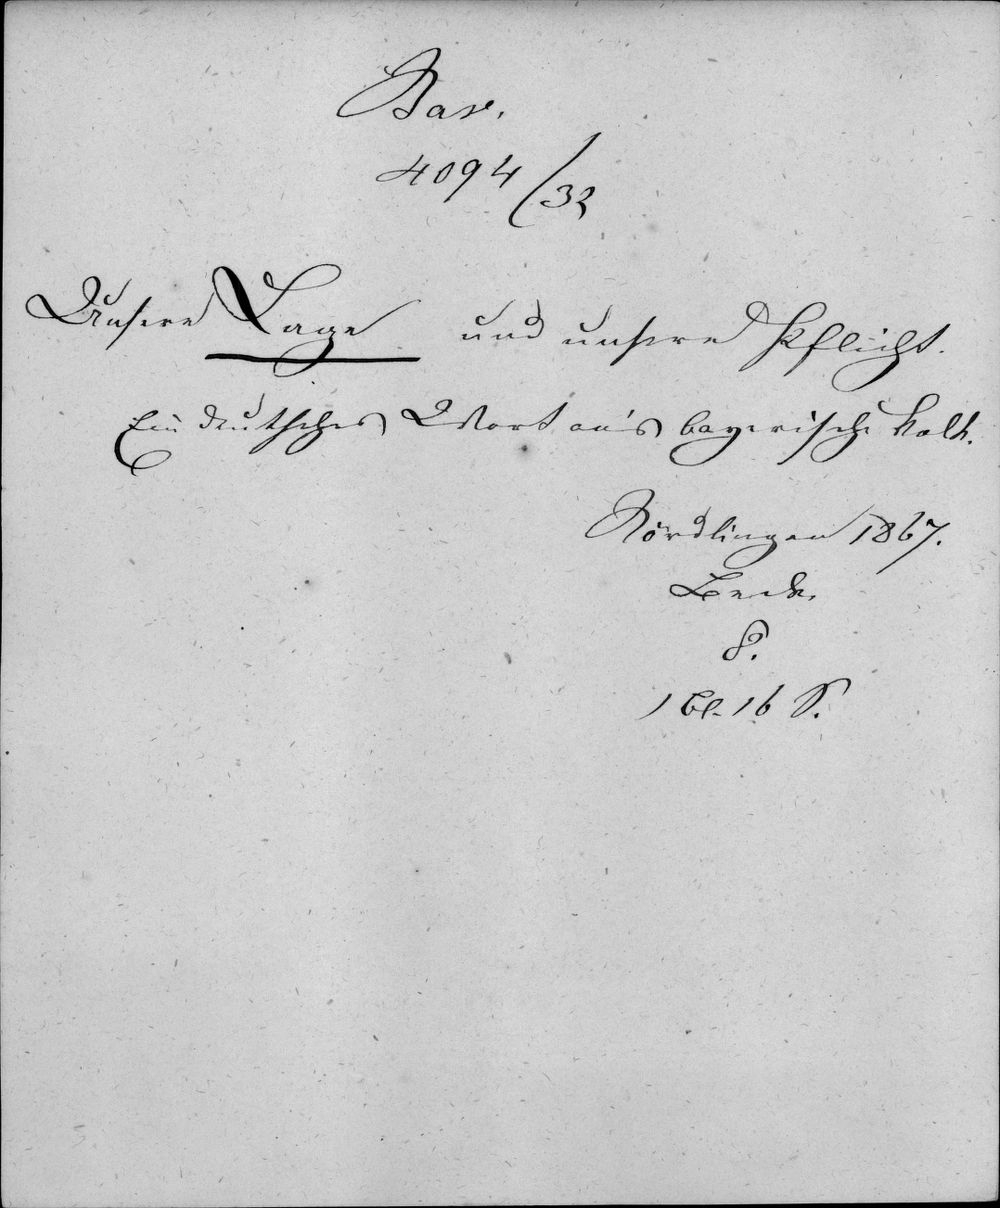 Bav.
4094/32
Unsere Lage und unsere Pflicht.
Ein deutsches Wort an's bayerische Volk.
Nördlingen 1867.
Beck.
8.
1 Bl. 16 S.